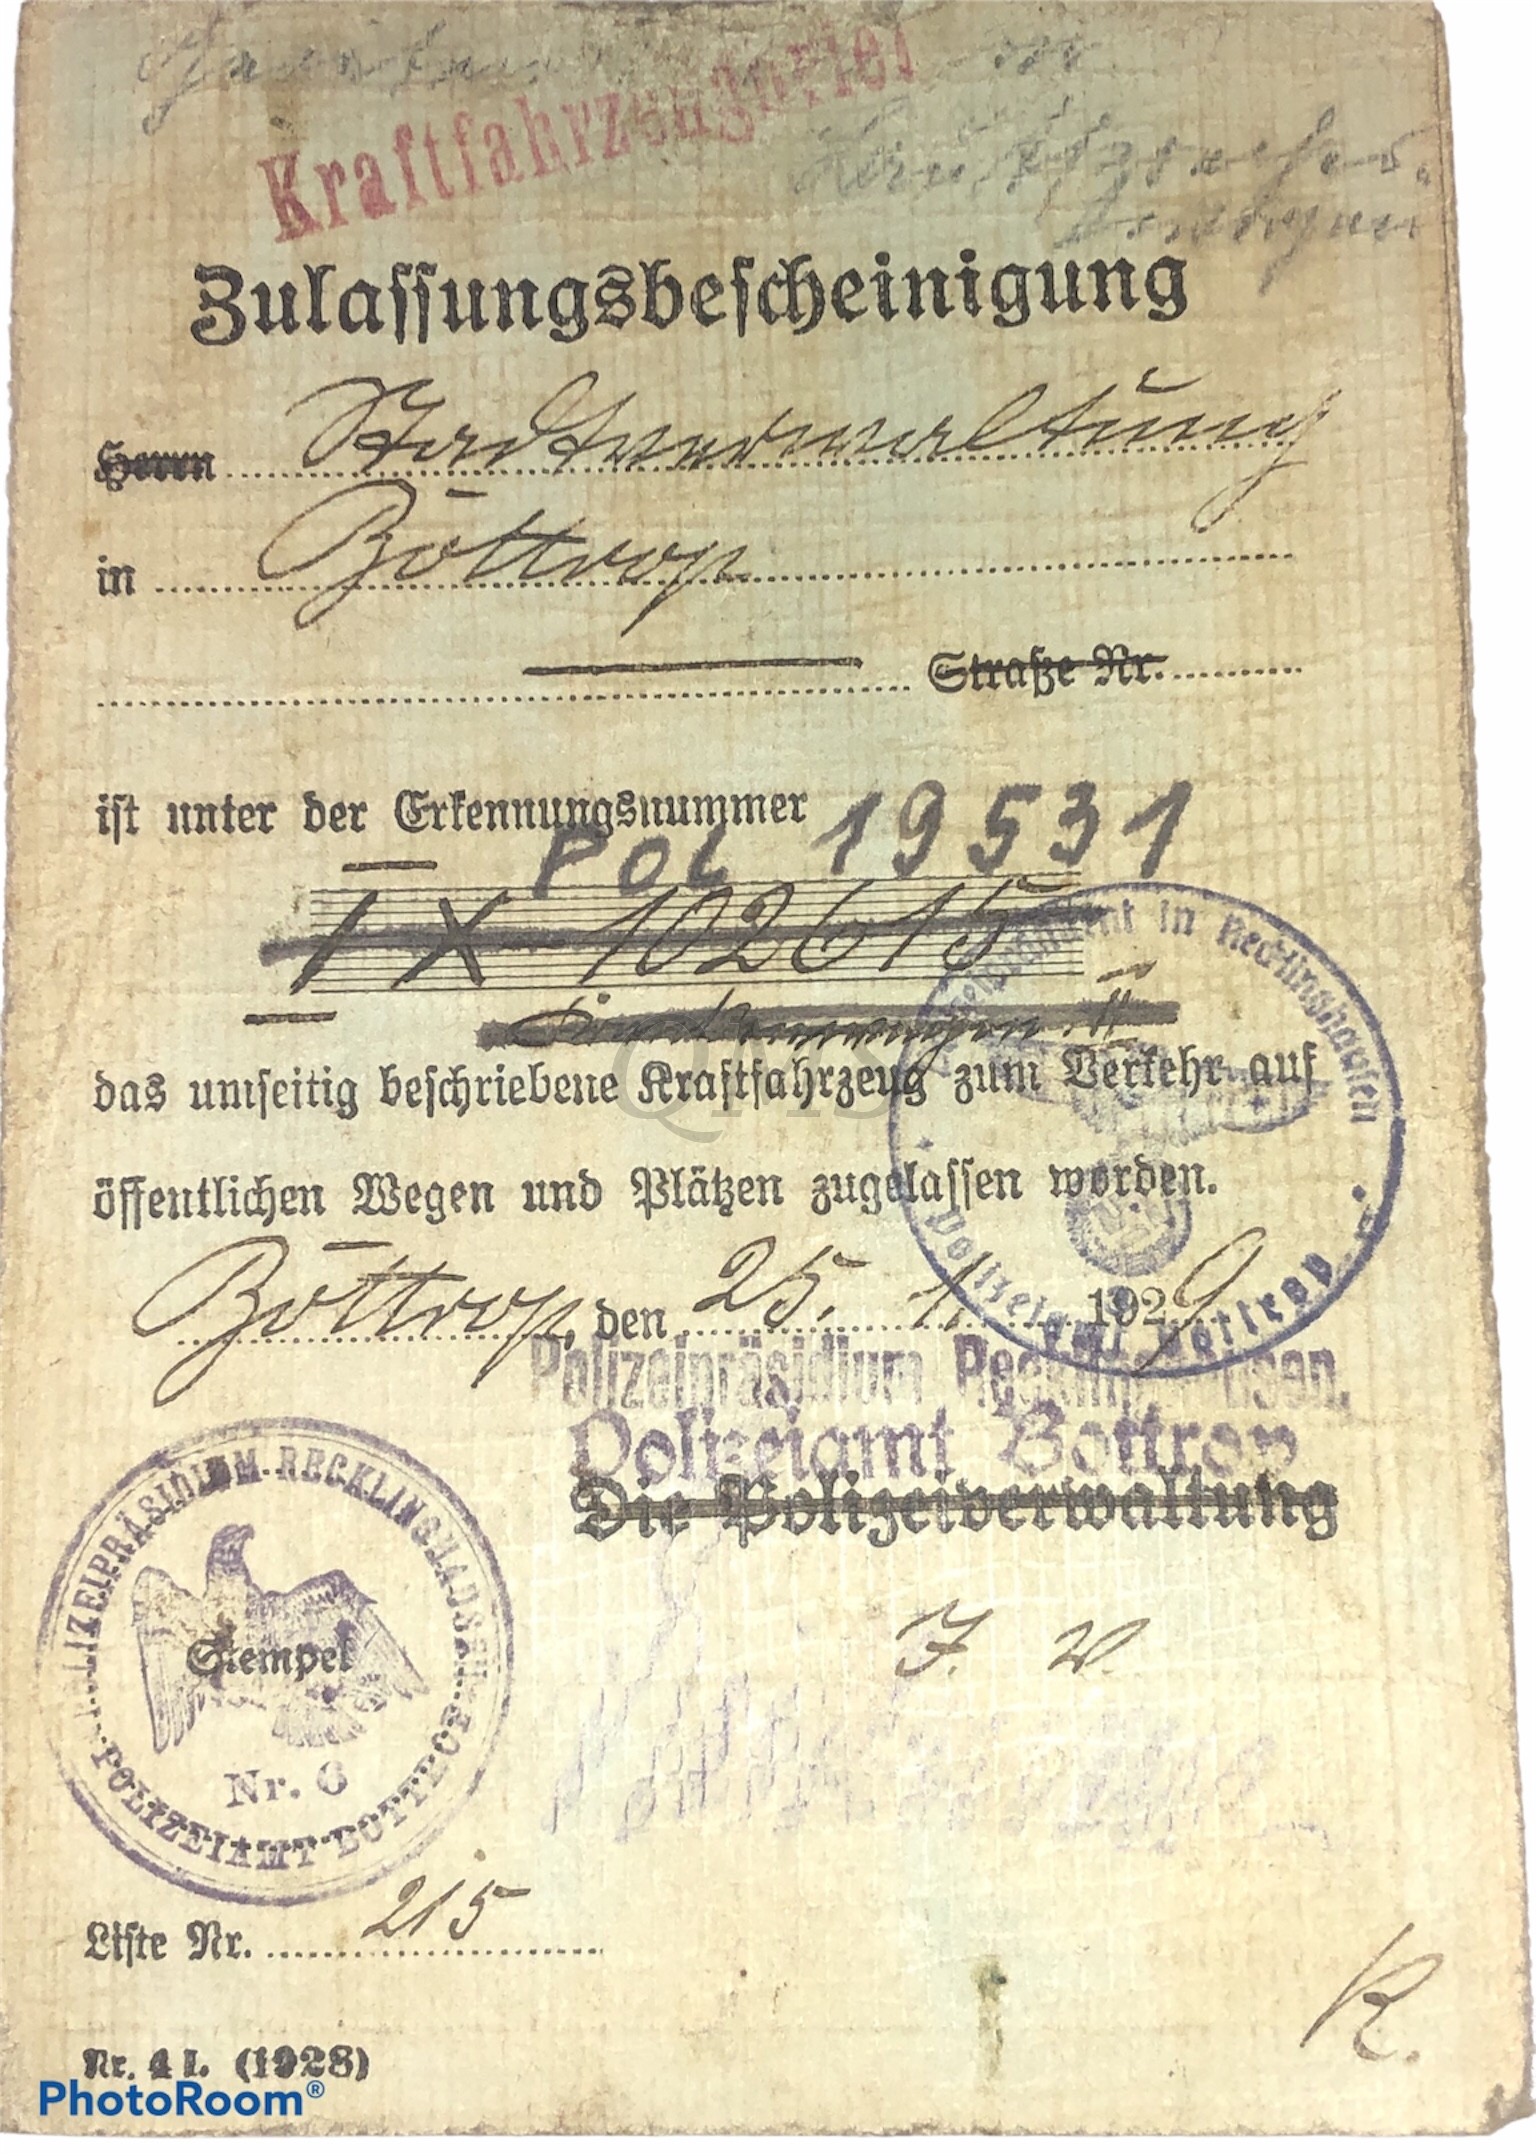 Kraftfahrzeugbrief
Zulassungsbescheinigung
Herrn Stadtverwaltung
in Bottrop
Straße Nr.
ist unter der Erkennungsnummer
Pol 19531
IX 102615
das umseitig beschriebene Kraftfahrzeug zum Verkehr auf
öffentlichen Wegen und Plätzen zugelassen worden.
Bottrop, den 25. 1. 1929
Polizeipräsident in Recklinghausen
Polizeiamt Bottrop
Polizeipräsidium Recklinghausen,
Polizeiamt Bottrop
Die Polizeiverwaltung
POLIZEIPRÄSIDIUM RECKLINGHAUSEN
Stempel
Nr. 6
POLIZEIAMT BOTTROP
J. V.
Liste Nr. 215
K.
Nr. 4 I. (1928)
PhotoRoom®